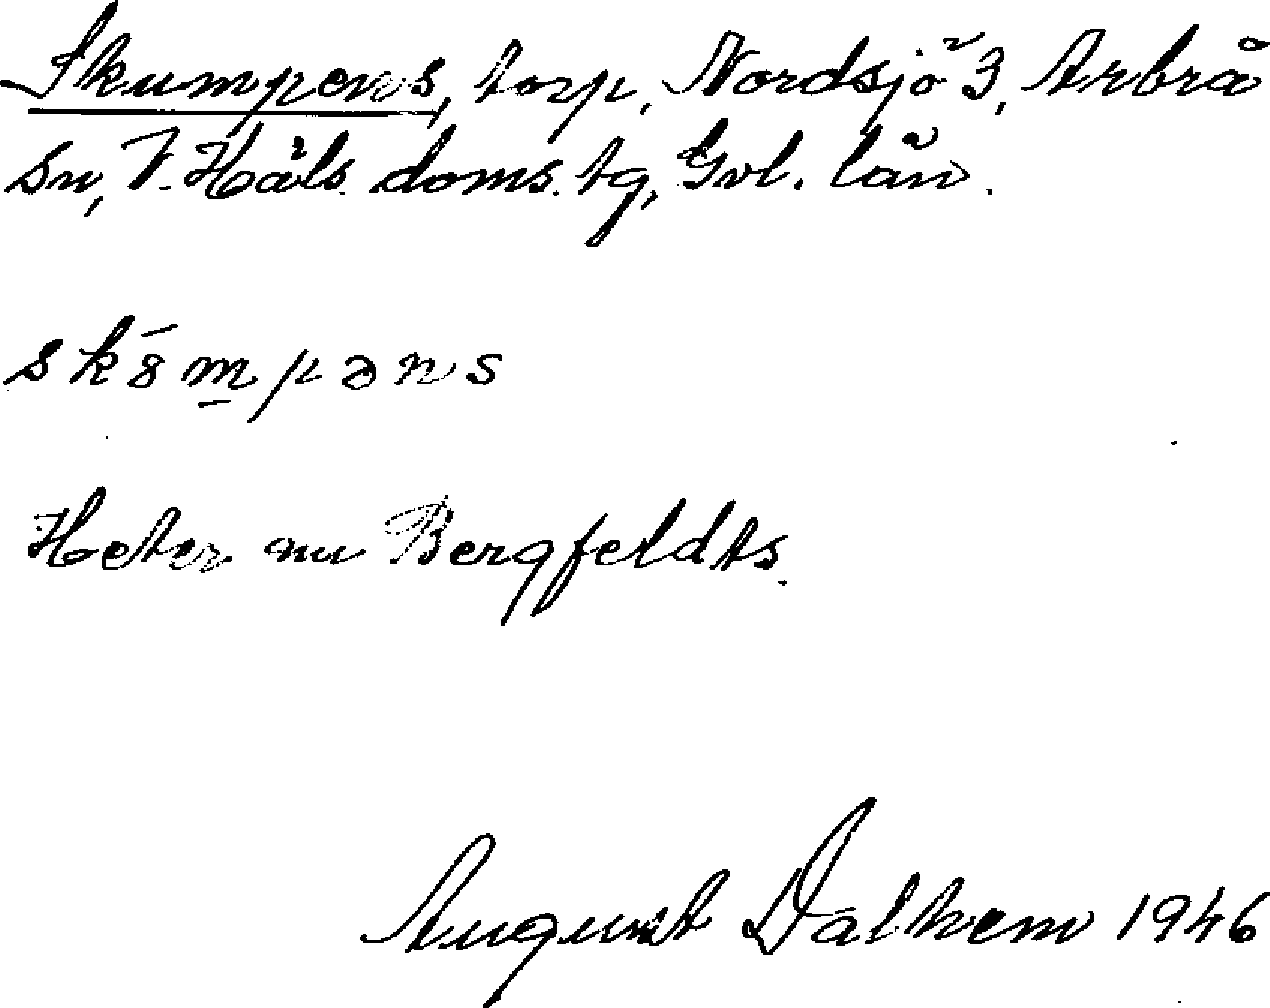 Skumpens, torp, Nordsjö 3, Arbrå
sn, V. Häls. doms. tg, Gvl. län.
Heter nu Bergfeldts.
August Dalhem 1946